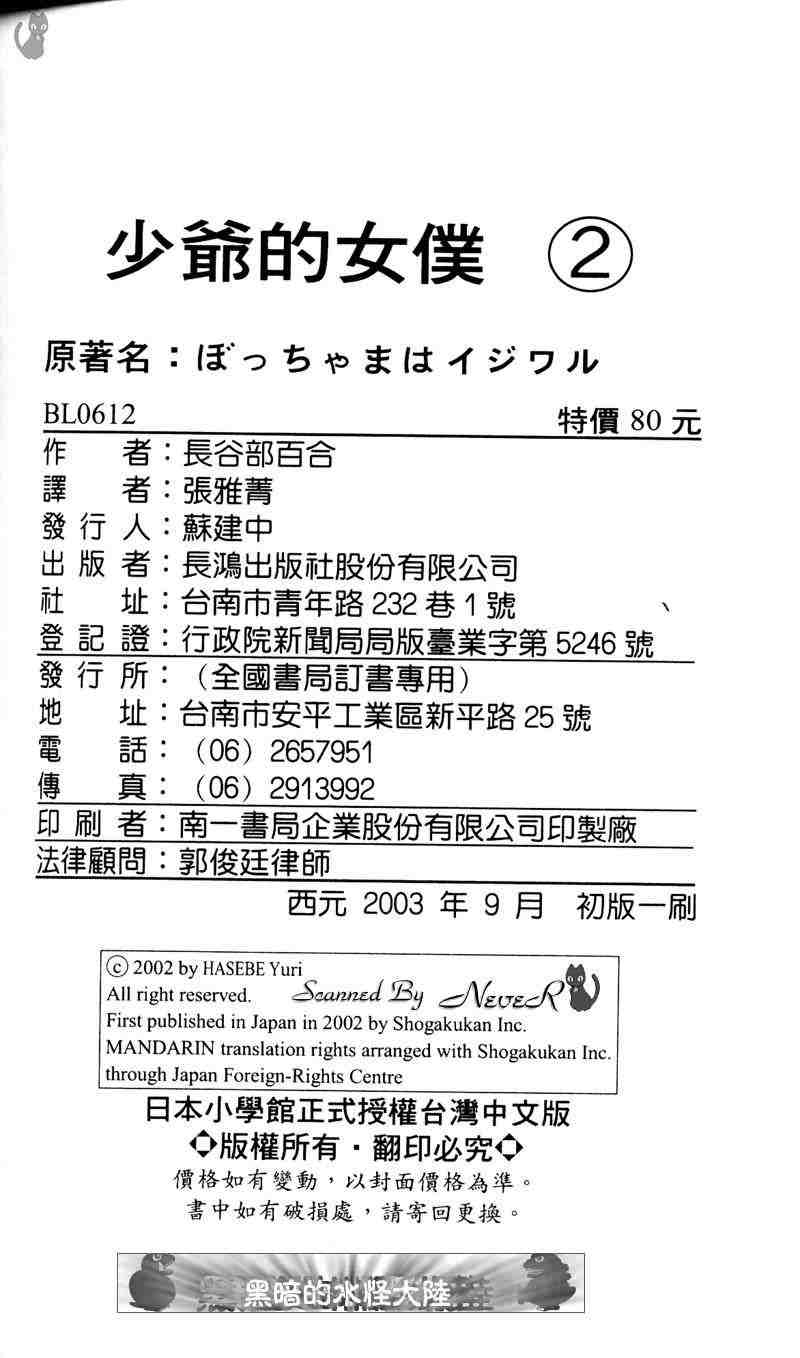 少爺的女僕 ②
原著名：ぼっちゃまはイジワル
BL0612 特價 80 元
作者：長谷部百合
譯者：張雅菁
發行人：蘇建中
出版者：長鴻出版社股份有限公司
社址：台南市青年路 232 巷 1 號
登記證：行政院新聞局局版臺業字第 5246 號
發行所：（全國書局訂書專用）
地址：台南市安平工業區新平路 25 號
電話：（06）2657951
傳真：（06）2913992
印刷者：南一書局企業股份有限公司印製廠
法律顧問：郭俊廷律師
西元 2003 年 9 月 初版一刷
© 2002 by HASEBE Yuri
All right reserved. Scanned By NeveR
First published in Japan in 2002 by Shogakukan Inc.
MANDARIN translation rights arranged with Shogakukan Inc.
through Japan Foreign-Rights Centre
日本小學館正式授權台灣中文版
◇版權所有・翻印必究◇
價格如有變動，以封面價格為準。
書中如有破損處，請寄回更換。
黑暗的水怪大陸